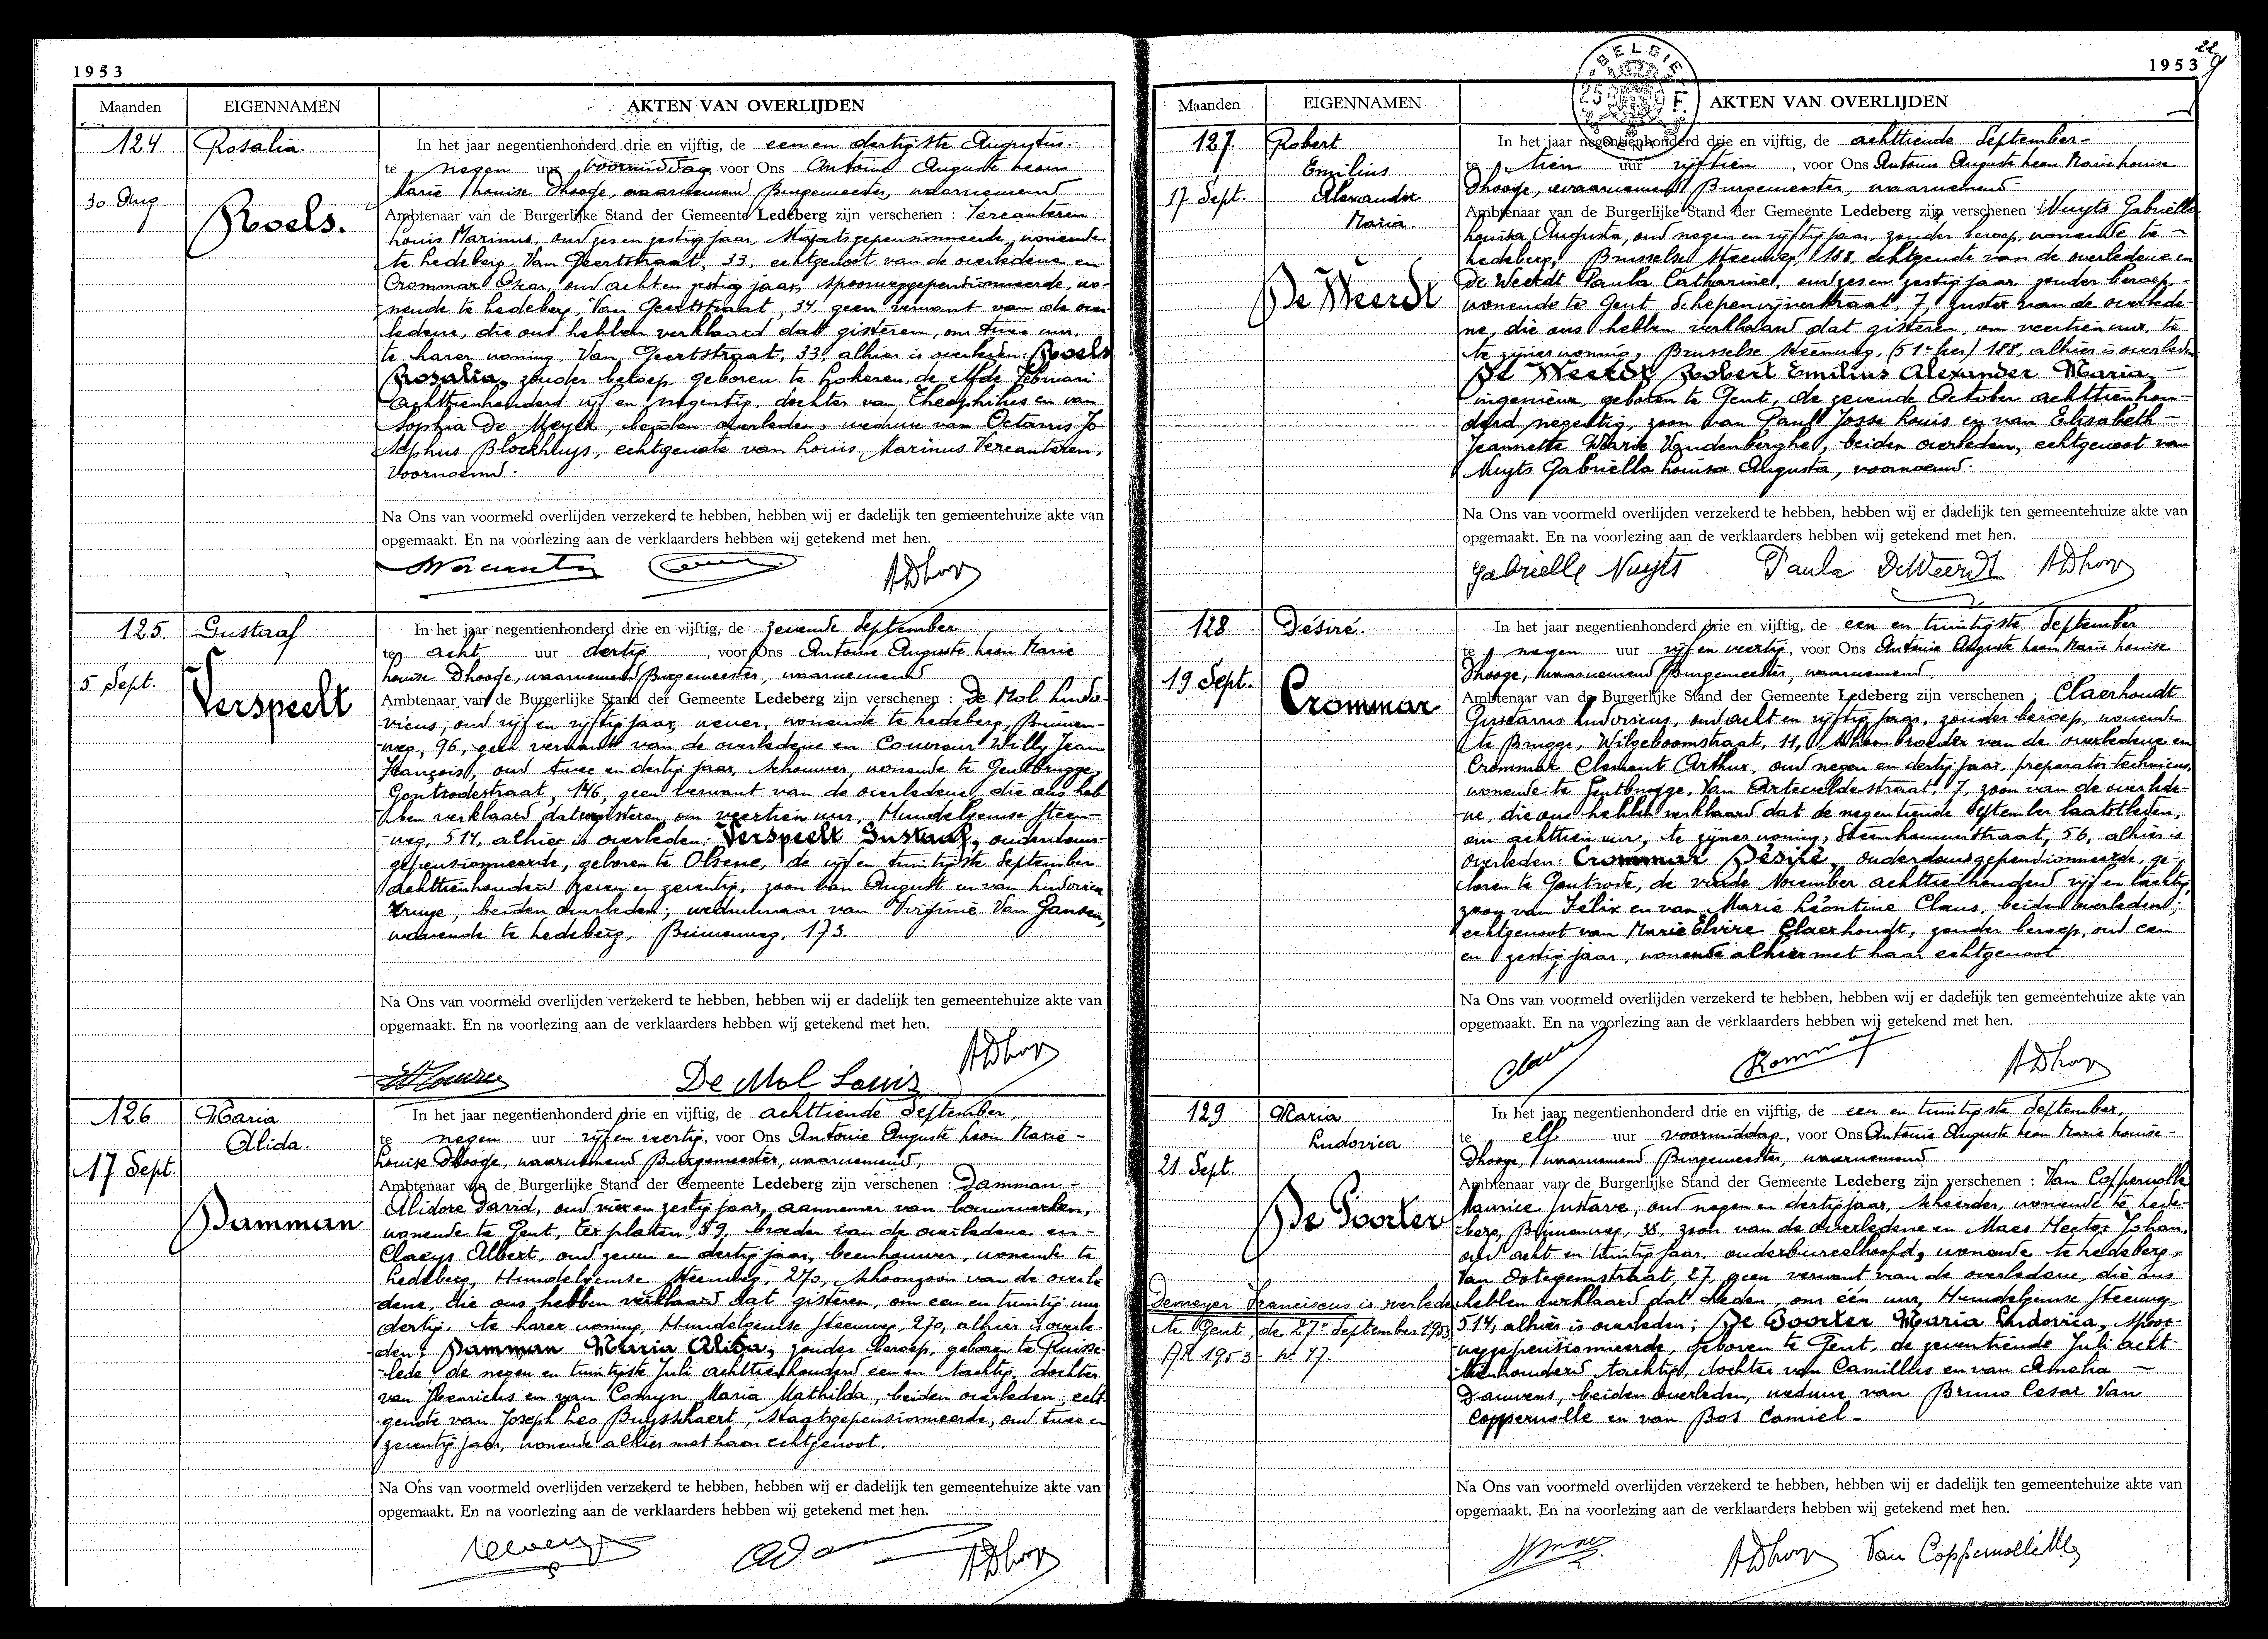 1953
Maanden EIGENNAMEN AKTEN VAN OVERLIJDEN
124 Rosalia
30 Aug
Roels.
In het jaar negentienhonderd drie en vijftig, de een en dertigste Augustus.
te negen uur voormiddag, voor Ons Antoine Auguste Leon
Marie Louise Dhooge, waarnemend Burgemeester, waarnemend
Ambtenaar van de Burgerlijke Stand der Gemeente Ledeberg zijn verschenen : Vercauteren
Louis Marinus, oud zes en zestig jaar, Staatsgepensionneerde, wonende
te Ledeberg, Van Geertstraat, 33, echtgenoot van de overledene en
Crommar Oscar, oud acht en zestig jaar, spoorweggepensionneerde, wo-
nende te Ledeberg, Van Geertstraat, 34, geen verwant van de over-
ledene, die ons hebben verklaard dat gisteren, om twee uur,
te harer woning, Van Geertstraat, 33, alhier is overleden: Roels
Rosalia, zonder beroep, geboren te Lokeren, de elfde Februari
achttienhonderd vijf en negentig, dochter van Theophilus en van
Sophia De Meyer, beiden overleden, weduwe van Octavus Jo-
sephus Blockhuys, echtgenote van Louis Marinus Vercauteren,
voornoemd.
Na Ons van voormeld overlijden verzekerd te hebben, hebben wij er dadelijk ten gemeentehuize akte van
opgemaakt. En na voorlezing aan de verklaarders hebben wij getekend met hen.
ADhooge
125. Gustaaf
5 Sept.
Verspeelt
In het jaar negentienhonderd drie en vijftig, de zevende September
te acht uur dertig, voor Ons Antoine Auguste Leon Marie
Louise Dhooge, waarnemend Burgemeester, waarnemend
Ambtenaar van de Burgerlijke Stand der Gemeente Ledeberg zijn verschenen : De Mol Ludo-
vicus, oud vijf en vijftig jaar, wever, wonende te Ledeberg, Binnen-
weg, 96, geen verwant van de overledene en Couvreur Willy Jean
François, oud twee en dertig jaar, schouwer, wonende te Gentbrugge,
Gontrodestraat, 146, geen verwant van de overledene, die ons heb-
ben verklaard dat eergisteren, om veertien uur, Hundelgemse steen-
weg, 514, alhier is overleden: Verspeelt Gustaaf, ouderdoms-
gepensionneerde, geboren te Olsene, de vijf en twintigste September
achttienhonderd zeven en zeventig, zoon van August en van Ludovica
beiden overleden; weduwnaar van Virginie Van Gansen,
wonende te Ledeberg, Binnenweg, 173.
Na Ons van voormeld overlijden verzekerd te hebben, hebben wij er dadelijk ten gemeentehuize akte van
opgemaakt. En na voorlezing aan de verklaarders hebben wij getekend met hen.
De Mol Louis ADhooge
126 Maria
Alida.
17 Sept.
Damman
In het jaar negentienhonderd drie en vijftig, de achttiende September,
te negen uur vijf en veertig, voor Ons Antoine Auguste Leon Marie -
Louise Dhooge, waarnemend Burgemeester, waarnemend,
Ambtenaar van de Burgerlijke Stand der Gemeente Ledeberg zijn verschenen : Damman -
Alidore David, oud vier en zestig jaar, aannemer van bouwwerken,
wonende te Gent, Ter platen, 59, broeder van de overledene en -
Claeys Albert, oud zeven en dertig jaar, beenhouwer, wonende te
Ledeberg, Hundelgemse steenweg, 270, schoonzoon van de overle-
dene, die ons hebben verklaard dat gisteren, om een en twintig uur
dertig, te harer woning, Hundelgemse steenweg, 270, alhier is overle-
den: Damman Maria Alida, zonder beroep, geboren te Ruisse-
lede, de negen en twintigste Juli achttienhonderd een en tachtig, dochter
van Henricus en van Comyn Maria Mathilda, beiden overleden; echt-
genote van Joseph Leo Buysschaert, Staatsgepensionneerde, oud twee en
zeventig jaar, wonende alhier met haar echtgenoot.
Na Ons van voormeld overlijden verzekerd te hebben, hebben wij er dadelijk ten gemeentehuize akte van
opgemaakt. En na voorlezing aan de verklaarders hebben wij getekend met hen.
ADhooge
22
1953
BELGIE
25 F.
Maanden EIGENNAMEN AKTEN VAN OVERLIJDEN
127 Robert
Emilius
17 Sept. Alexander
Maria.
De Weerdt
In het jaar negentienhonderd drie en vijftig, de achttiende September -
te tien uur vijftien, voor Ons Antoine Auguste Leon Marie Louise
Dhooge, waarnemend Burgemeester, waarnemend
Ambtenaar van de Burgerlijke Stand der Gemeente Ledeberg zijn verschenen : Nuyts Gabriëlla
Louisa Augusta, oud negen en vijftig jaar, zonder beroep, wonende te -
Ledeberg, Brusselse steenweg, 188, echtgenote van de overledene en
De Weerdt Paula Catharine, oud zes en zestig jaar, zonder beroep,
wonende te Gent, Schepenvijverstraat, 7, zuster van de overlede-
ne, die ons hebben verklaard dat gisteren, om veertien uur, te
te zijner woning, Brusselse steenweg, 188, alhier is overleden
De Weerdt Robert Emilius Alexander Maria, -
ingenieur, geboren te Gent, de zevende October achttienhon-
derd negentig, zoon van Paul Josse Louis en van Elisabeth -
Jeannette Marie Vandenberghe, beiden overleden, echtgenoot van
Nuyts Gabriëlla Louisa Augusta, voornoemd.
Na Ons van voormeld overlijden verzekerd te hebben, hebben wij er dadelijk ten gemeentehuize akte van
opgemaakt. En na voorlezing aan de verklaarders hebben wij getekend met hen.
Gabrielle Nuyts Paula DeWeerdt ADhooge
128 Désiré.
19 Sept.
Crommar
In het jaar negentienhonderd drie en vijftig, de een en twintigste September
te negen uur vijf en veertig, voor Ons Antoine Auguste Leon Marie Louise
Dhooge, waarnemend Burgemeester, waarnemend,
Ambtenaar van de Burgerlijke Stand der Gemeente Ledeberg zijn verschenen : Claerhoudt
Gustavus Ludovicus, oud acht en vijftig jaar, zonder beroep, wonende
te Brugge, Wilgeboomstraat, 11, schoonbroeder van de overledene en
Crommar Clement Arthur, oud negen en dertig jaar, preparator technicus,
wonende te Gentbrugge, Van Arteveldestraat, 7, zoon van de overlede-
ne, die ons hebben verklaard dat de negentiende September laatstleden,
om achttien uur, te zijner woning, Steenhouwerstraat, 56, alhier is
overleden: Crommar Désiré, ouderdomsgepensionneerde, ge-
boren te Gontrode, de vierde November achttienhonderd vijf en tachtig,
zoon van Félix en van Marie Léontine Claus, beiden overleden;
echtgenoot van Marie Elvire Claerhoudt, zonder beroep, oud een
en zestig jaar, wonende alhier met haar echtgenoot
Na Ons van voormeld overlijden verzekerd te hebben, hebben wij er dadelijk ten gemeentehuize akte van
opgemaakt. En na voorlezing aan de verklaarders hebben wij getekend met hen.
ADhooge
129 Maria
Ludovica
21 Sept.
De Poorter
Demeyer Franciscus is overleden
te Gent de 27e September 1953
AR 1953 - Nr. 47.
In het jaar negentienhonderd drie en vijftig, de een en twintigste September,
te elf uur voormiddag, voor Ons Antoine Auguste Leon Marie Louise -
Dhooge, waarnemend Burgemeester, waarnemend
Ambtenaar van de Burgerlijke Stand der Gemeente Ledeberg zijn verschenen : Van Coppernolle
Maurice Gustave, oud negen en dertig jaar, scheerder, wonende te Lede-
berg, Binnenweg, 38, zoon van de overledene en Maes Hector Johan,
oud acht en twintig jaar, onderbureelhoofd, wonende te Ledeberg,
Van Ootegemstraat, 27, geen verwant van de overledene, die ons
hebben verklaard dat heden, om één uur, Hundelgemse steenweg,
514, alhier is overleden; De Poorter Maria Ludovica, spoor-
weggepensionneerde, geboren te Gent, de zeventiende Juli acht-
tienhonderd tachtig, dochter van Camillus en van Amelia -
Dauwens, beiden overleden, weduwe van Bruno Cesar Van
Coppernolle en van Bos Camiel -
Na Ons van voormeld overlijden verzekerd te hebben, hebben wij er dadelijk ten gemeentehuize akte van
opgemaakt. En na voorlezing aan de verklaarders hebben wij getekend met hen.
ADhooge Van Coppernolle